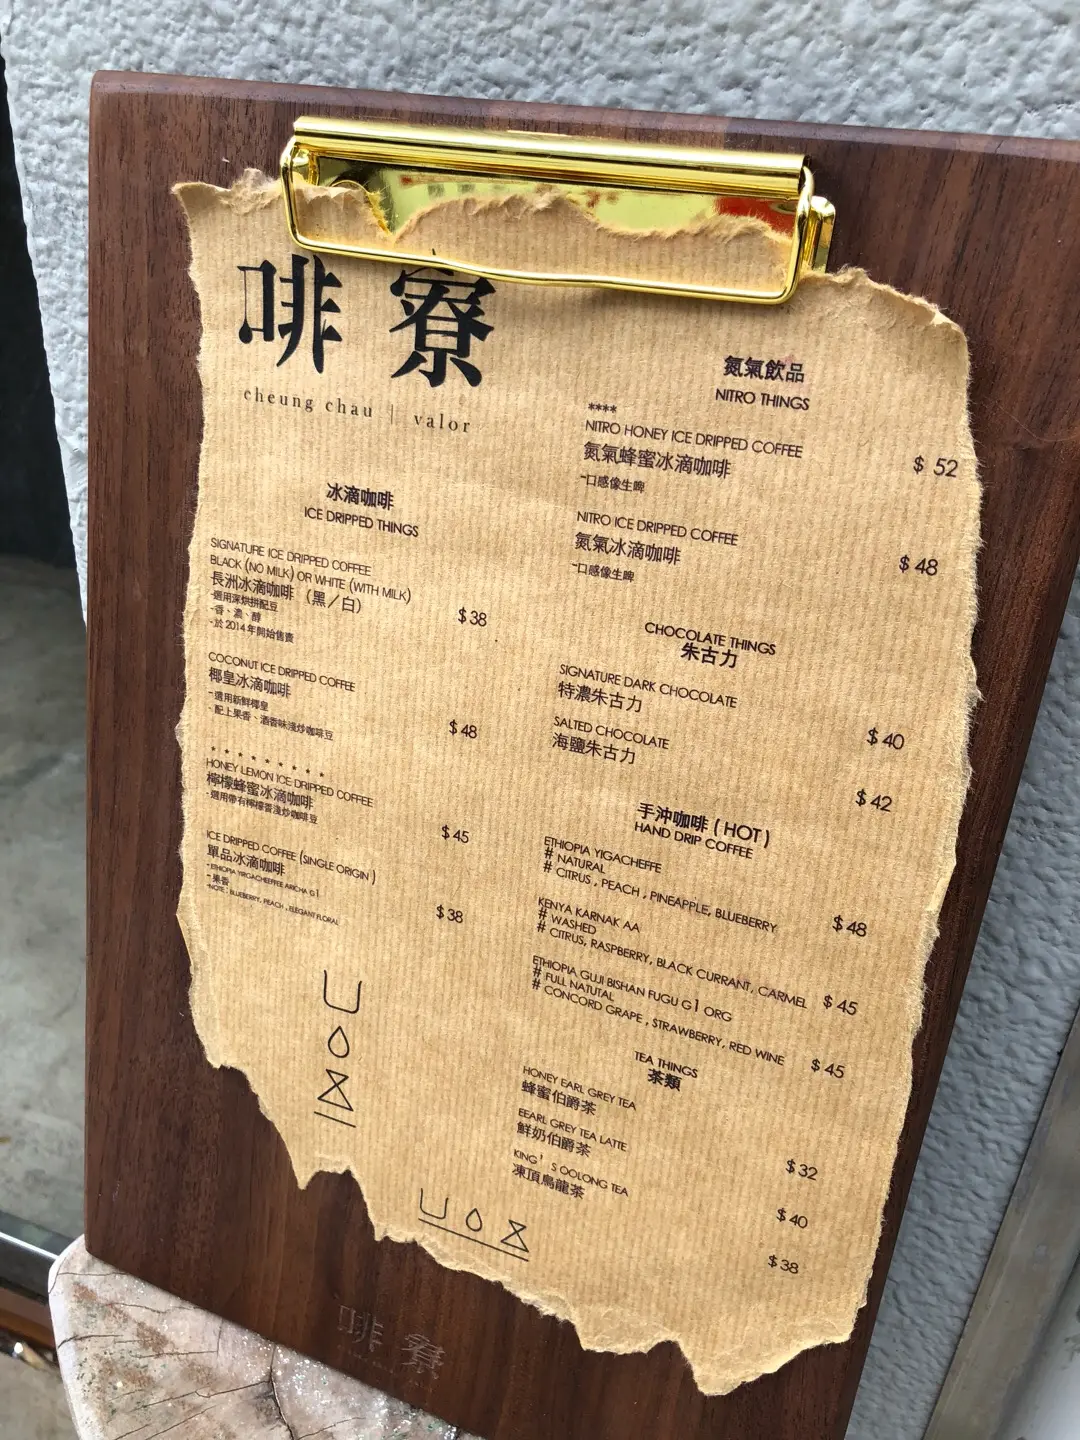 啡寮
cheung chau | valor
冰滴咖啡
ICE DRIPPED THINGS
SIGNATURE ICE DRIPPED COFFEE
BLACK (NO MILK) OR WHITE (WITH MILK)
長洲冰滴咖啡 （黑／白）
-選用深烘拼配豆
-香、濃、醇
-於2014年開始售賣
$38
COCONUT ICE DRIPPED COFFEE
椰皇冰滴咖啡
-選用新鮮椰皇
-配上果香、酒香味淺炒咖啡豆
$48
* * * * * * * * *
HONEY LEMON ICE DRIPPED COFFEE
檸檬蜂蜜冰滴咖啡
-選用帶有檸檬香淺炒咖啡豆
$45
ICE DRIPPED COFFEE (SINGLE ORIGIN )
單品冰滴咖啡
-ETHIOPIA YIRGACHEEFFEE ARICHA G1
-果香
-NOTE : BLUEBERRY, PEACH , ELEGANT FLORAL
$38
氮氣飲品
NITRO THINGS
****
NITRO HONEY ICE DRIPPED COFFEE
氮氣蜂蜜冰滴咖啡
-口感像生啤
$ 52
NITRO ICE DRIPPED COFFEE
氮氣冰滴咖啡
-口感像生啤
$ 48
CHOCOLATE THINGS
朱古力
SIGNATURE DARK CHOCOLATE
特濃朱古力
$ 40
SALTED CHOCOLATE
海鹽朱古力
$ 42
手沖咖啡 ( HOT )
HAND DRIP COFFEE
ETHIOPIA YIGACHEFFE
# NATURAL
# CITRUS , PEACH , PINEAPPLE, BLUEBERRY
$ 48
KENYA KARNAK AA
# WASHED
# CITRUS, RASPBERRY, BLACK CURRANT, CARMEL
$ 45
ETHIOPIA GUJI BISHAN FUGU G1 ORG
# FULL NATUTAL
# CONCORD GRAPE , STRAWBERRY, RED WINE
$ 45
TEA THINGS
茶類
HONEY EARL GREY TEA
蜂蜜伯爵茶
$ 32
EEARL GREY TEA LATTE
鮮奶伯爵茶
$ 40
KING'S OOLONG TEA
凍頂烏龍茶
$ 38
啡寮